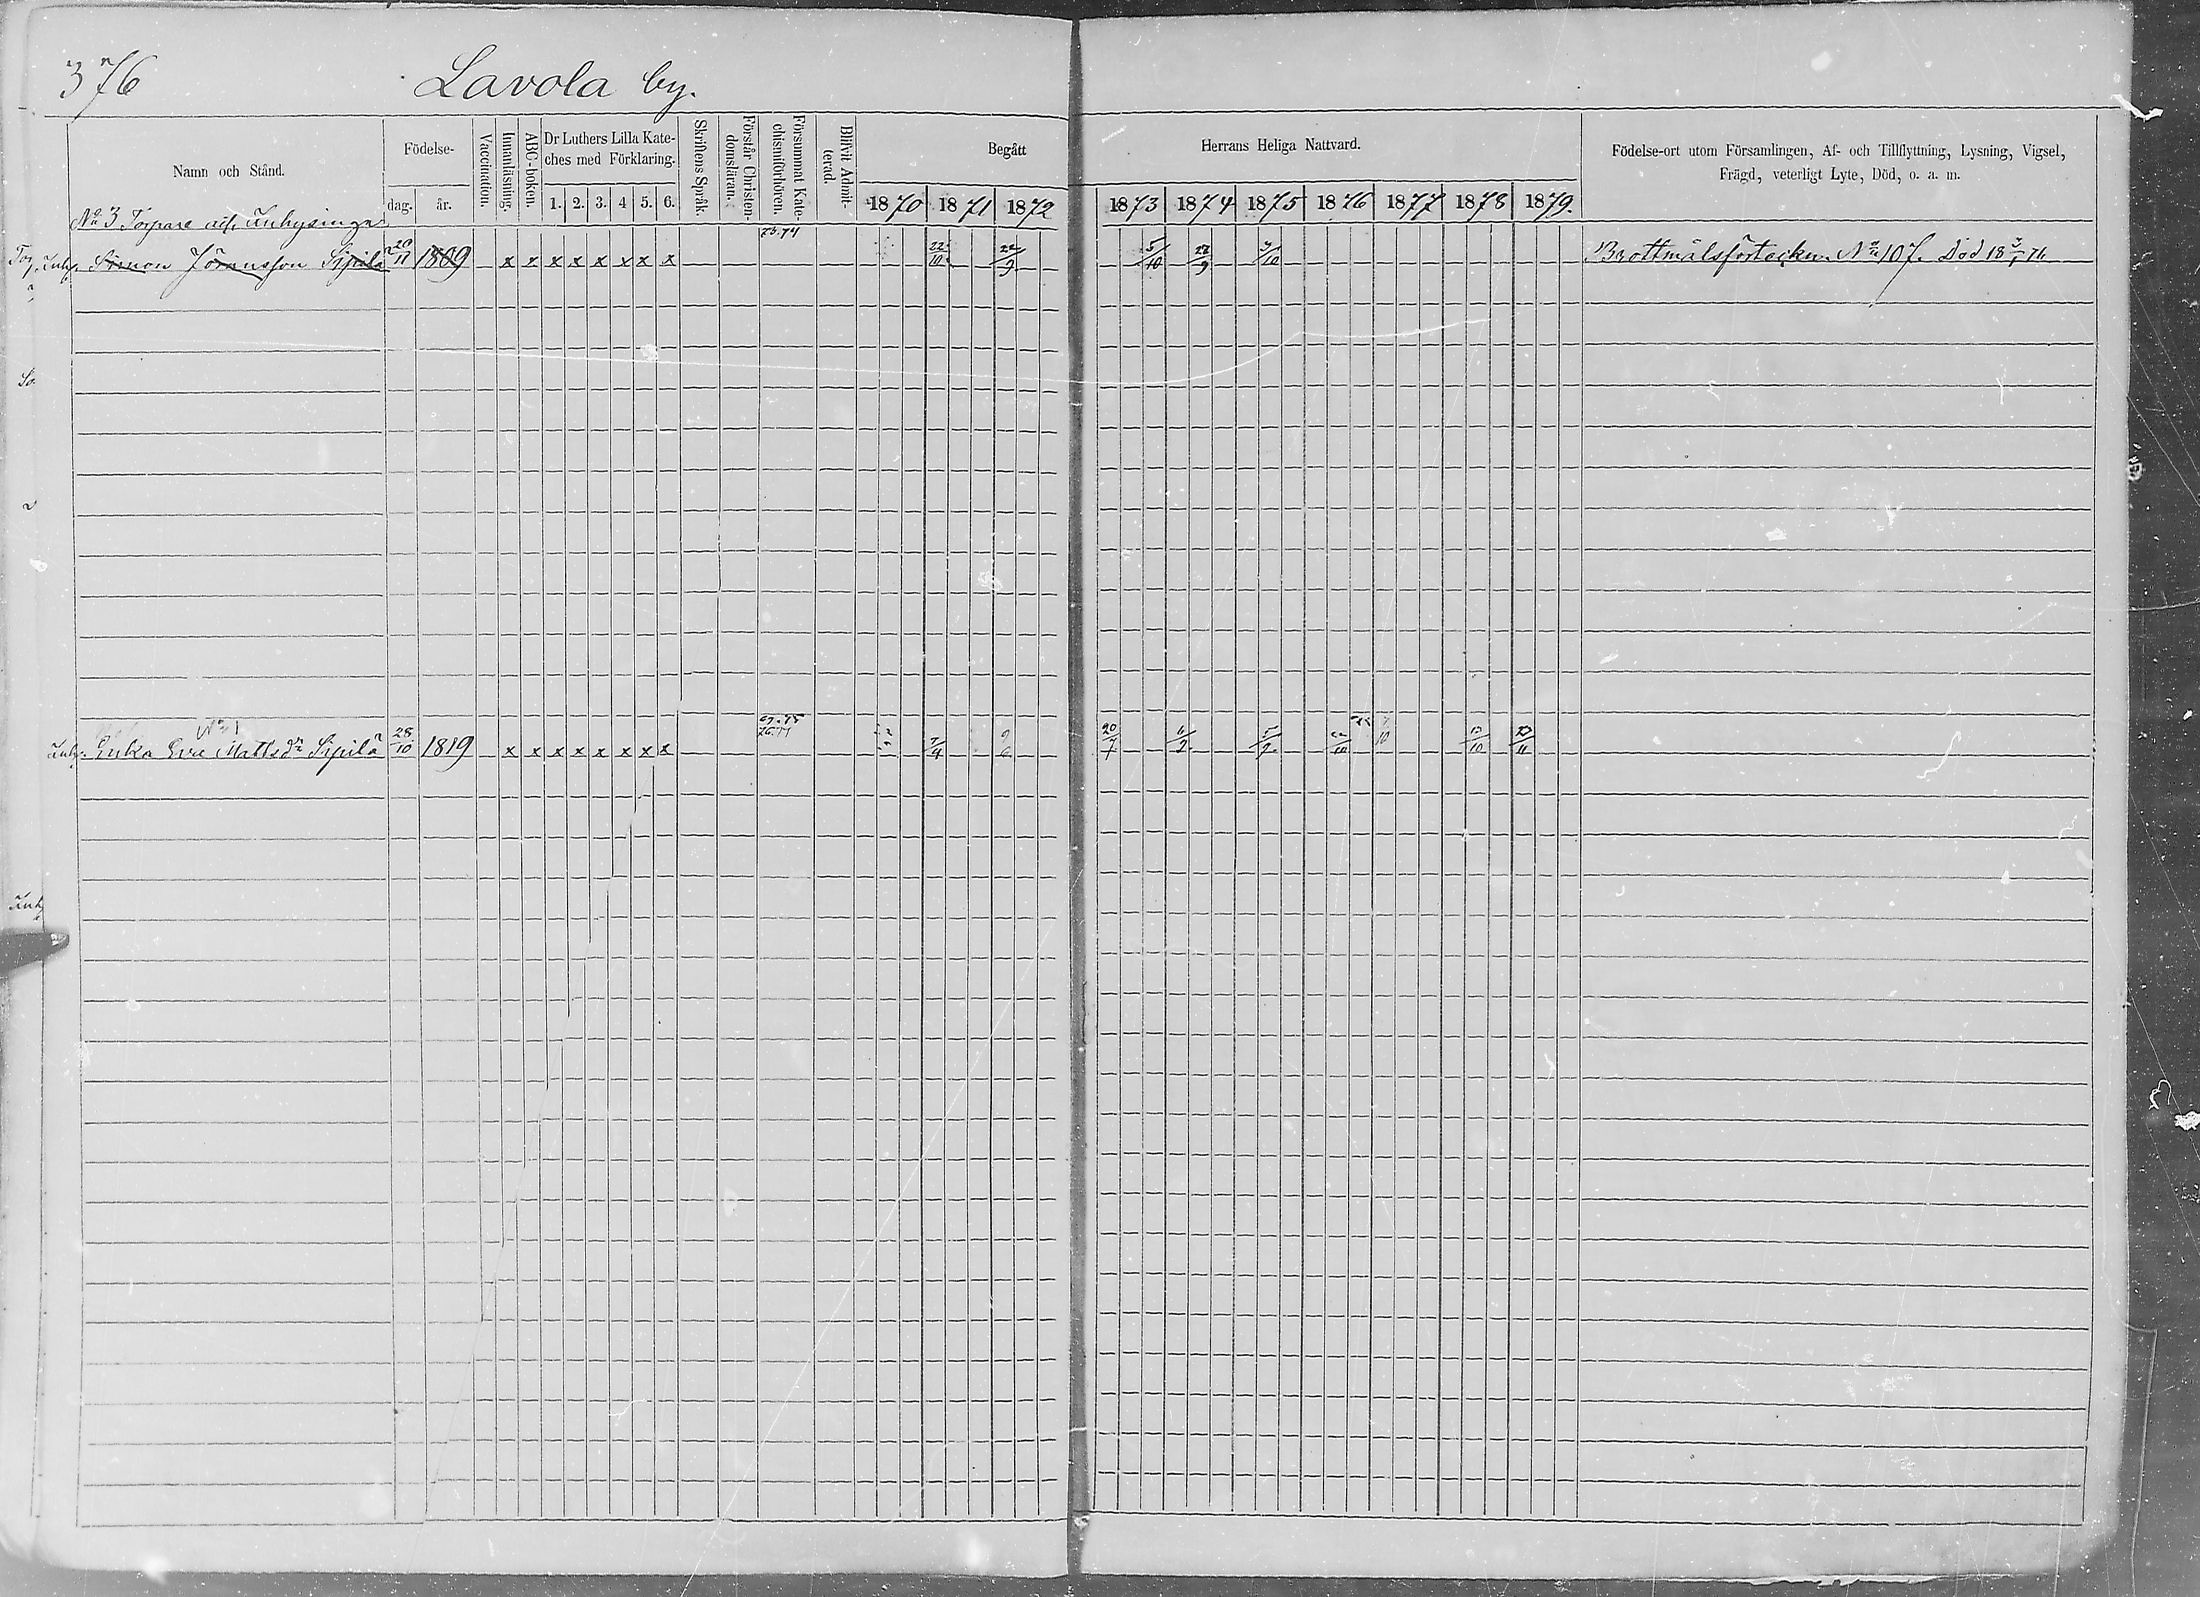 376 Lavola by.
Namn och Stånd.
Födelse-
dag. år.
Vaccination.
Innanläsning.
ABC-boken.
Dr Luthers Lilla Kate-
ches med Förklaring.
1. 2. 3. 4 5. 6.
Skriftens Språk.
Förstår Christen-
domsläran.
Försummat Kate-
chismiförhören.
Blifvit Admit-
terad.
Begått
1870 1871 1872
Herrans Heliga Nattvard.
1873 1874 1875 1876 1877 1878 1879.
Födelse-ort utom Församlingen, Af- och Tillflyttning, Lysning, Vigsel,
Frägd, veterligt Lyte, Död, o. a. m.
No 3 Torpare och Inhysingar
73.74
Inh. Simon Jöransson Sipilä 20/11 1809 x x x x x x x x 22/10 22/9 5/10 27/9 3/10 Brottmålsförteckn. No 107. Död 18 3/1 76
No 1
Inh. Erika Eva Mattsdr Sipilä 28/10 1819 x x x x x x x x 7/4 9/6 20/7 6/2 5/2 10 13/10 23/11
Inh